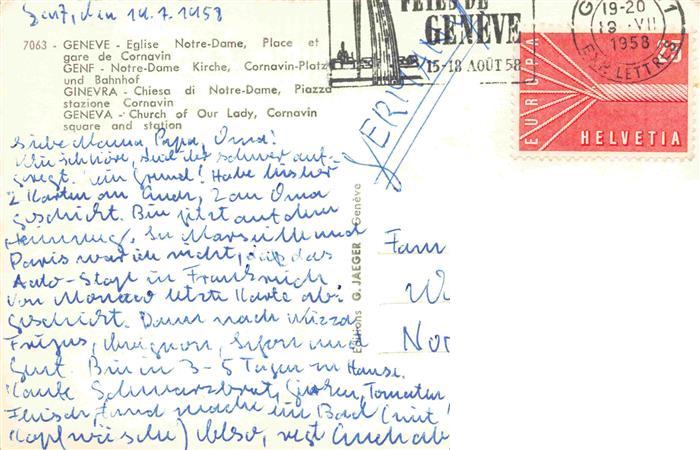 Genf, den 19.7.1958
7063 - GENEVE - Eglise Notre-Dame, Place et
gare de Cornavin
GENF - Notre-Dame Kirche, Cornavin-Platz
und Bahnhof
GINEVRA - Chiesa di Notre-Dame, Piazza
stazione Cornavin
GENEVA - Church of Our Lady, Cornavin
square and station
FÊTES DE
GENÈVE
15-18 AOÛT 58
G 1
19-20
19. VII
1958
EXP. LETTRES
EUROPA
HELVETIA
Liebe Mama, Papa, Oma!
Wie ich höre, seid Ihr schwer auf-
geregt. Kein Grund! Habe bisher
2 Karten an Euch, 2 an Oma
geschickt. Bin jetzt auf dem
Heimweg. In Marseille und
Paris war ich nicht, da das
Auto-Stop in Frankreich
Von Monaco letzte Karte ab-
geschickt. Dann nach Nizza
Fréjus, Avignon, Lyon und
Genf. Bin in 3-5 Tagen zu Hause.
Kauft Schwarzbrot, Gurken, Tomaten
Fleisch, und macht ein Bad (mit
Kopf(wäsche) Also, regt Euch ab
Editions G. JAEGER Genève
Fam
W
Nor